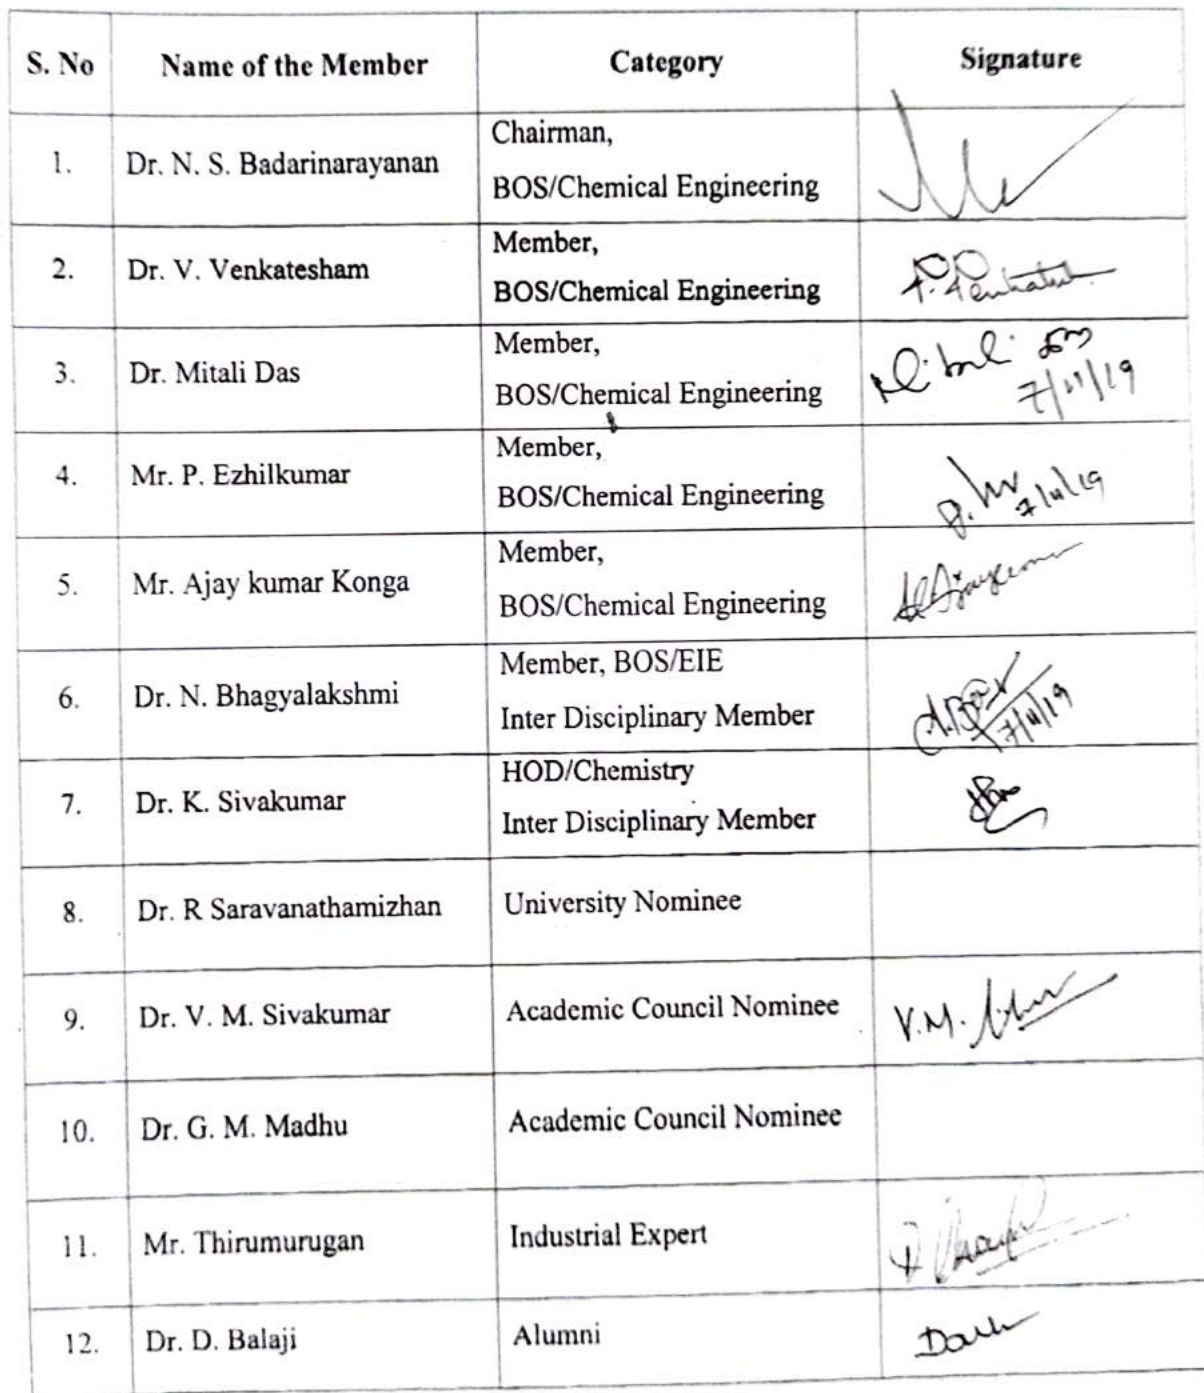 S. No Name of the Member Category Signature
1. Dr. N. S. Badarinarayanan Chairman,
BOS/Chemical Engineering
2. Dr. V. Venkatesham Member,
BOS/Chemical Engineering
3. Dr. Mitali Das Member,
BOS/Chemical Engineering
7/11/19
4. Mr. P. Ezhilkumar Member,
BOS/Chemical Engineering
7/11/19
5. Mr. Ajay kumar Konga Member,
BOS/Chemical Engineering
6. Dr. N. Bhagyalakshmi Member, BOS/EIE
Inter Disciplinary Member
7/11/19
7. Dr. K. Sivakumar HOD/Chemistry
Inter Disciplinary Member
8. Dr. R Saravanathamizhan University Nominee
9. Dr. V. M. Sivakumar Academic Council Nominee V.M.
10. Dr. G. M. Madhu Academic Council Nominee
11. Mr. Thirumurugan Industrial Expert
12. Dr. D. Balaji Alumni